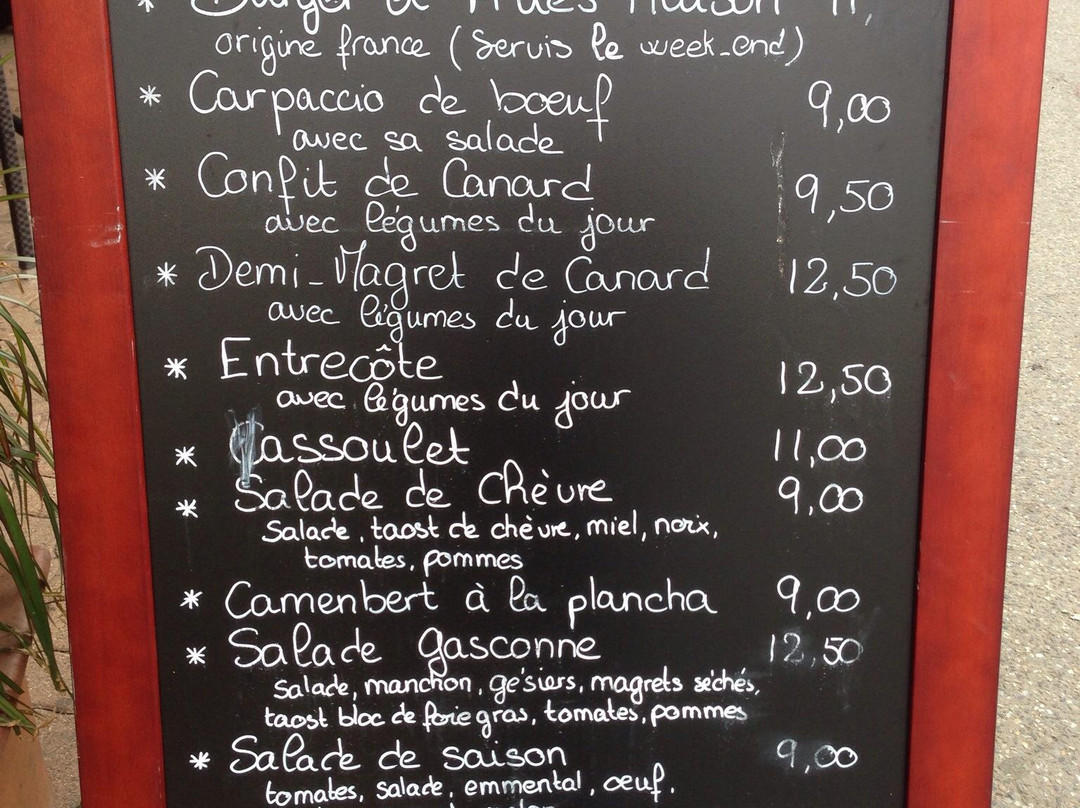 * Burger & Frites Maison 11,
origine france (Servis le week-end)
* Carpaccio de boeuf 9,00
avec sa salade
* Confit de Canard 9,50
avec légumes du jour
* Demi-Magret de Canard 12,50
avec légumes du jour
* Entrecôte 12,50
avec légumes du jour
* Cassoulet 11,00
* Salade de chèvre 9,00
Salade, taost de chèvre, miel, noix,
tomates, pommes
* Camenbert à la plancha 9,00
* Salade gasconne 12,50
Salade, manchon, gésiers, magrets séchés,
taost bloc de foie gras, tomates, pommes
* Salade de saison 9,00
tomates, salade, emmental, oeuf,